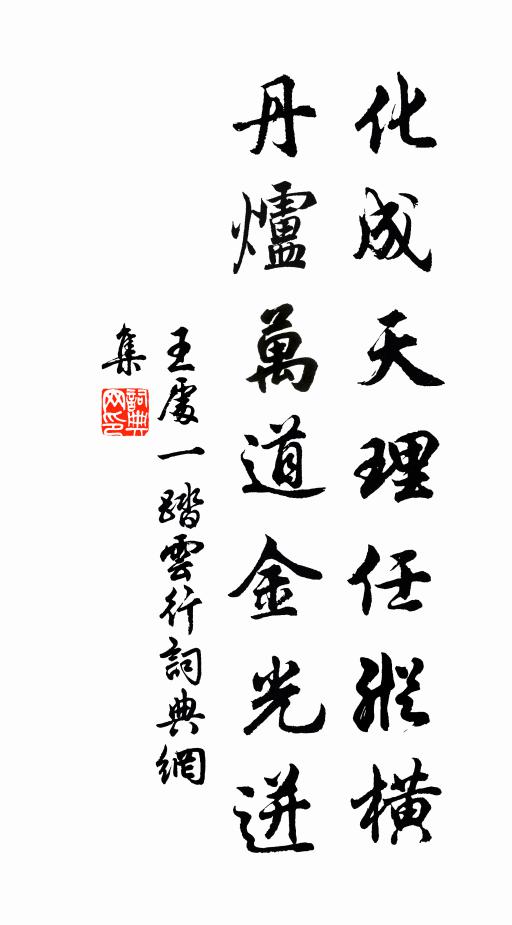 化成天理任縱橫
丹爐萬道金光迸
王處一踏雲行詞典網
集
詞典
网印